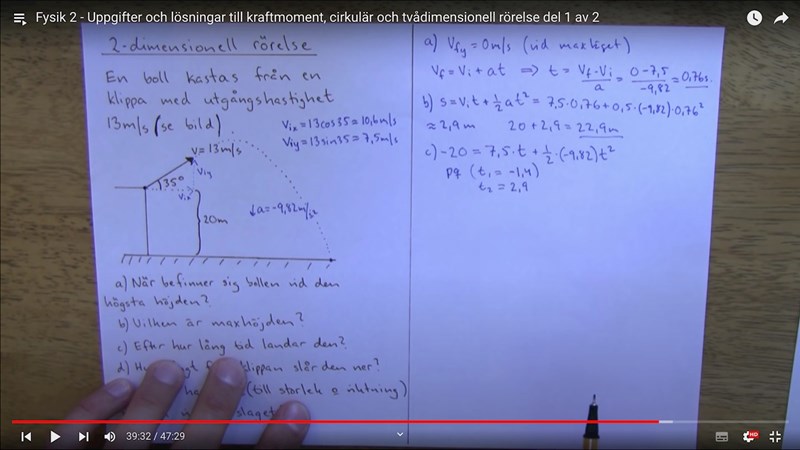 Fysik 2 - Uppgifter och lösningar till kraftmoment, cirkulär och tvådimensionell rörelse del 1 av 2
2-dimensionell rörelse
En boll kastas från en
klippa med utgångshastighet
13m/s (se bild)
Vix = 13cos35 = 10,6m/s
Viy = 13sin35 = 7,5m/s
V = 13m/s
Viy
35°
Vix
20m
↓a = -9,82m/s²
a) När befinner sig bollen vid den
högsta höjden?
b) Vilken är maxhöjden?
c) Efter hur lång tid landar den?
d) klippan slår den ner?
(till storlek o riktning)
slaget
a) Vfy = 0m/s (vid maxläget)
Vf = Vi + at ⇒ t = (Vf - Vi)/a = (0 - 7,5)/(-9,82) = 0,76s.
b) s = Vi t + 1/2 at² = 7,5·0,76 + 0,5·(-9,82)·0,76²
≈ 2,9m 20 + 2,9 = 22,9m
c) -20 = 7,5·t + 1/2·(-9,82)t²
pq (t₁ = -1,4)
t₂ = 2,9
39:32 / 47:29
HD